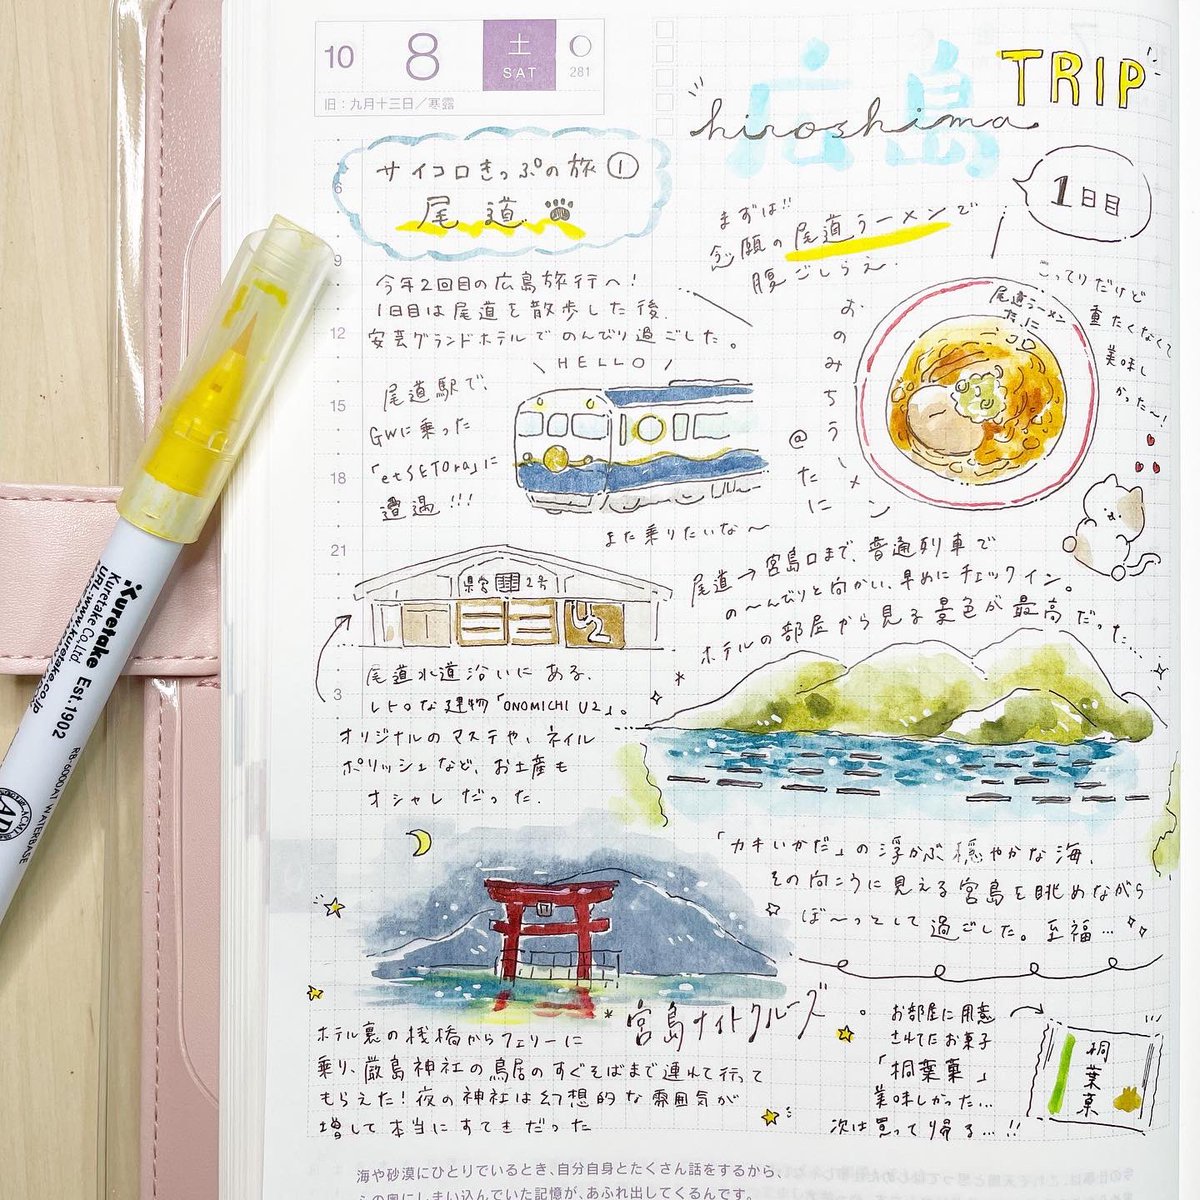 10
8
土
SAT
281
旧：九月十三日／寒露
広島
hiroshima
TRIP
サイコロきっぷの旅①
尾道
1日目
まずは!!
念願の尾道ラーメンで
腹ごしらえ.
今年2回目の広島旅行へ!
1日目は尾道を散歩した後.
安芸グランドホテルでのんびり過ごした。
HELLO
尾道駅で、
GWに乗った
「etSETOra」に
遭遇!!!
また乗りたいな〜
おのみちらーめん
@たに
尾道ラーメン
たに
こってりだけど
重たくなくて
美味し
かった〜!
県営2号
U2
尾道水道沿いにある、
レトロな建物「ONOMICHI U2」。
オリジナルのマステや、ネイル
ポリッシュなど、お土産も
オシャレだった.
尾道→宮島口まで、普通列車で
の〜んびりと向かい、早めにチェックイン。
ホテルの部屋から見る景色が最高だった…
「カキいかだ」の浮かぶ穏やかな海、
その向こうに見える宮島を眺めながら
ぼ〜っとして過ごした。至福…
*宮島ナイトクルーズ
ホテル裏の桟橋からフェリーに
乗り、厳島神社の鳥居のすぐそばまで連れて行って
もらえた!夜の神社は幻想的な雰囲気が
増して本当にすてきだった
お部屋に用意
されてたお菓子
「桐葉菓」
美味しかった…
次は買って帰る…!!
桐葉菓
海や砂漠にひとりでいるとき、自分自身とたくさん話をするから、
心の奥にしまい込んでいた記憶が、あふれ出してくるんです。
3
6
9
12
15
18
21
3
Kuretake
Kuretake Co.,Ltd. Est.1902
URL:www.kuretake.co.jp
RB-6000AT WATERBASE